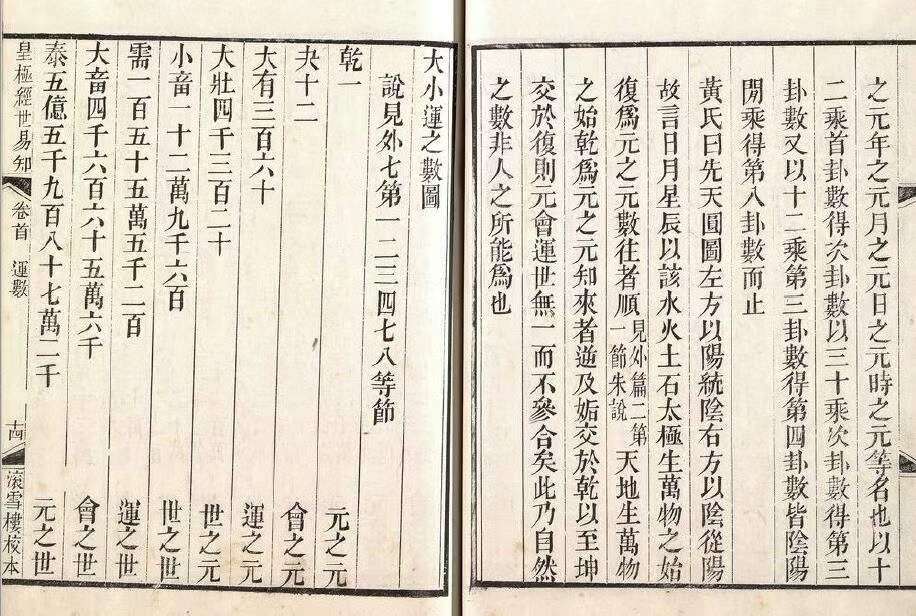 之元年之元月之元日之元時之元等名也以十
二乘首卦數得次卦數以三十乘次卦數得第三
卦數又以十二乘第三卦數得第四卦數皆陰陽
閒乘得第八卦數而止
黃氏曰先天圓圖左方以陽統陰右方以陰從陽
故言日月星辰以該水火土石太極生萬物之始
復爲元之元數往者順見外篇二第一節朱說天地生萬物
之始乾爲元之元知來者逆及姤交於乾以至坤
交於復則元會運世無一而不參合矣此乃自然
之數非人之所能爲也
大小運之數圖
說見外七第一二三四七八等節
乾一 元之元
夬十二 會之元
大有三百六十 運之元
大壯四千三百二十 世之元
小畜一十二萬九千六百 世之世
需一百五十五萬五千二百 運之世
大畜四千六百六十五萬六千 會之世
泰五億五千九百八十七萬二千 元之世
皇極經世易知 卷首 運數 十四 滾雪樓校本